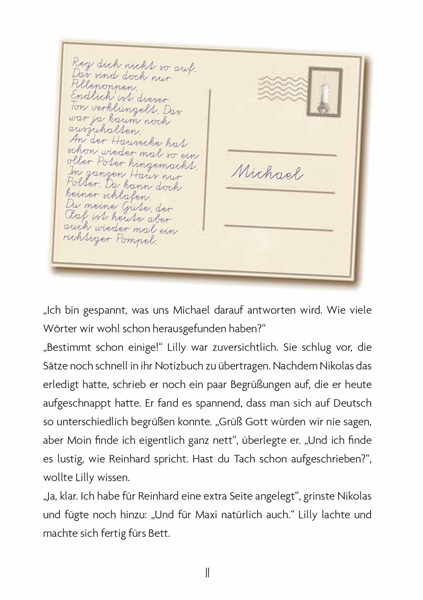 Reg dich nicht so auf.
Das sind doch nur
Pillenonpen.
Endlich ist dieser
Ton verklüngelt. Das
war ja kaum noch
auszuhalten.
An der Hausecke hat
schon wieder mal so ein
oller Poter hingemacht.
Im ganzen Haus nur
Polter. Da kann doch
keiner schlafen.
Du meine Güte, der
Olaf ist heute aber
auch wieder mal ein
richtiger Pompel.
Michael
„Ich bin gespannt, was uns Michael darauf antworten wird. Wie viele
Wörter wir wohl schon herausgefunden haben?“
„Bestimmt schon einige!“ Lilly war zuversichtlich. Sie schlug vor, die
Sätze noch schnell in ihr Notizbuch zu übertragen. Nachdem Nikolas das
erledigt hatte, schrieb er noch ein paar Begrüßungen auf, die er heute
aufgeschnappt hatte. Er fand es spannend, dass man sich auf Deutsch
so unterschiedlich begrüßen konnte. „Grüß Gott würden wir nie sagen,
aber Moin finde ich eigentlich ganz nett“, überlegte er. „Und ich finde
es lustig, wie Reinhard spricht. Hast du Tach schon aufgeschrieben?“,
wollte Lilly wissen.
„Ja, klar. Ich habe für Reinhard eine extra Seite angelegt“, grinste Nikolas
und fügte noch hinzu: „Und für Maxi natürlich auch.“ Lilly lachte und
machte sich fertig fürs Bett.
11